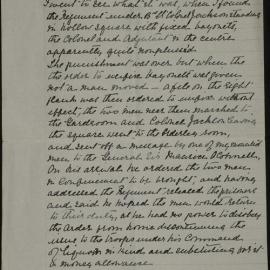 I went to see what it was, when I found
the Regiment under Bt. Col. Jackson standing
in hollow square with fixed bayonets,
the Colonel and Adjutant in the centre
apparently quite nonplused.
The punishment was over but when the
the order to unfix bayonets was given
not a man moved — a file on the right
flank was then ordered to unfix without
effect, the two men were then marched to
the Guardroom and Colonel Jackson leaving
the square went to the Orderly room,
and sent off a message by one of my mounted
men to the General Sir Maurice O'Connell.
On his arrival he ordered the two men
in confinement to be brought, and having
addressed the Regiment, released the prisoners
and said he hoped the men would return
to their duty, as he had no power to disobey
the order from home discontinuing the
issue to the troops under his Command
of in kind and substituting for it
a money allowance